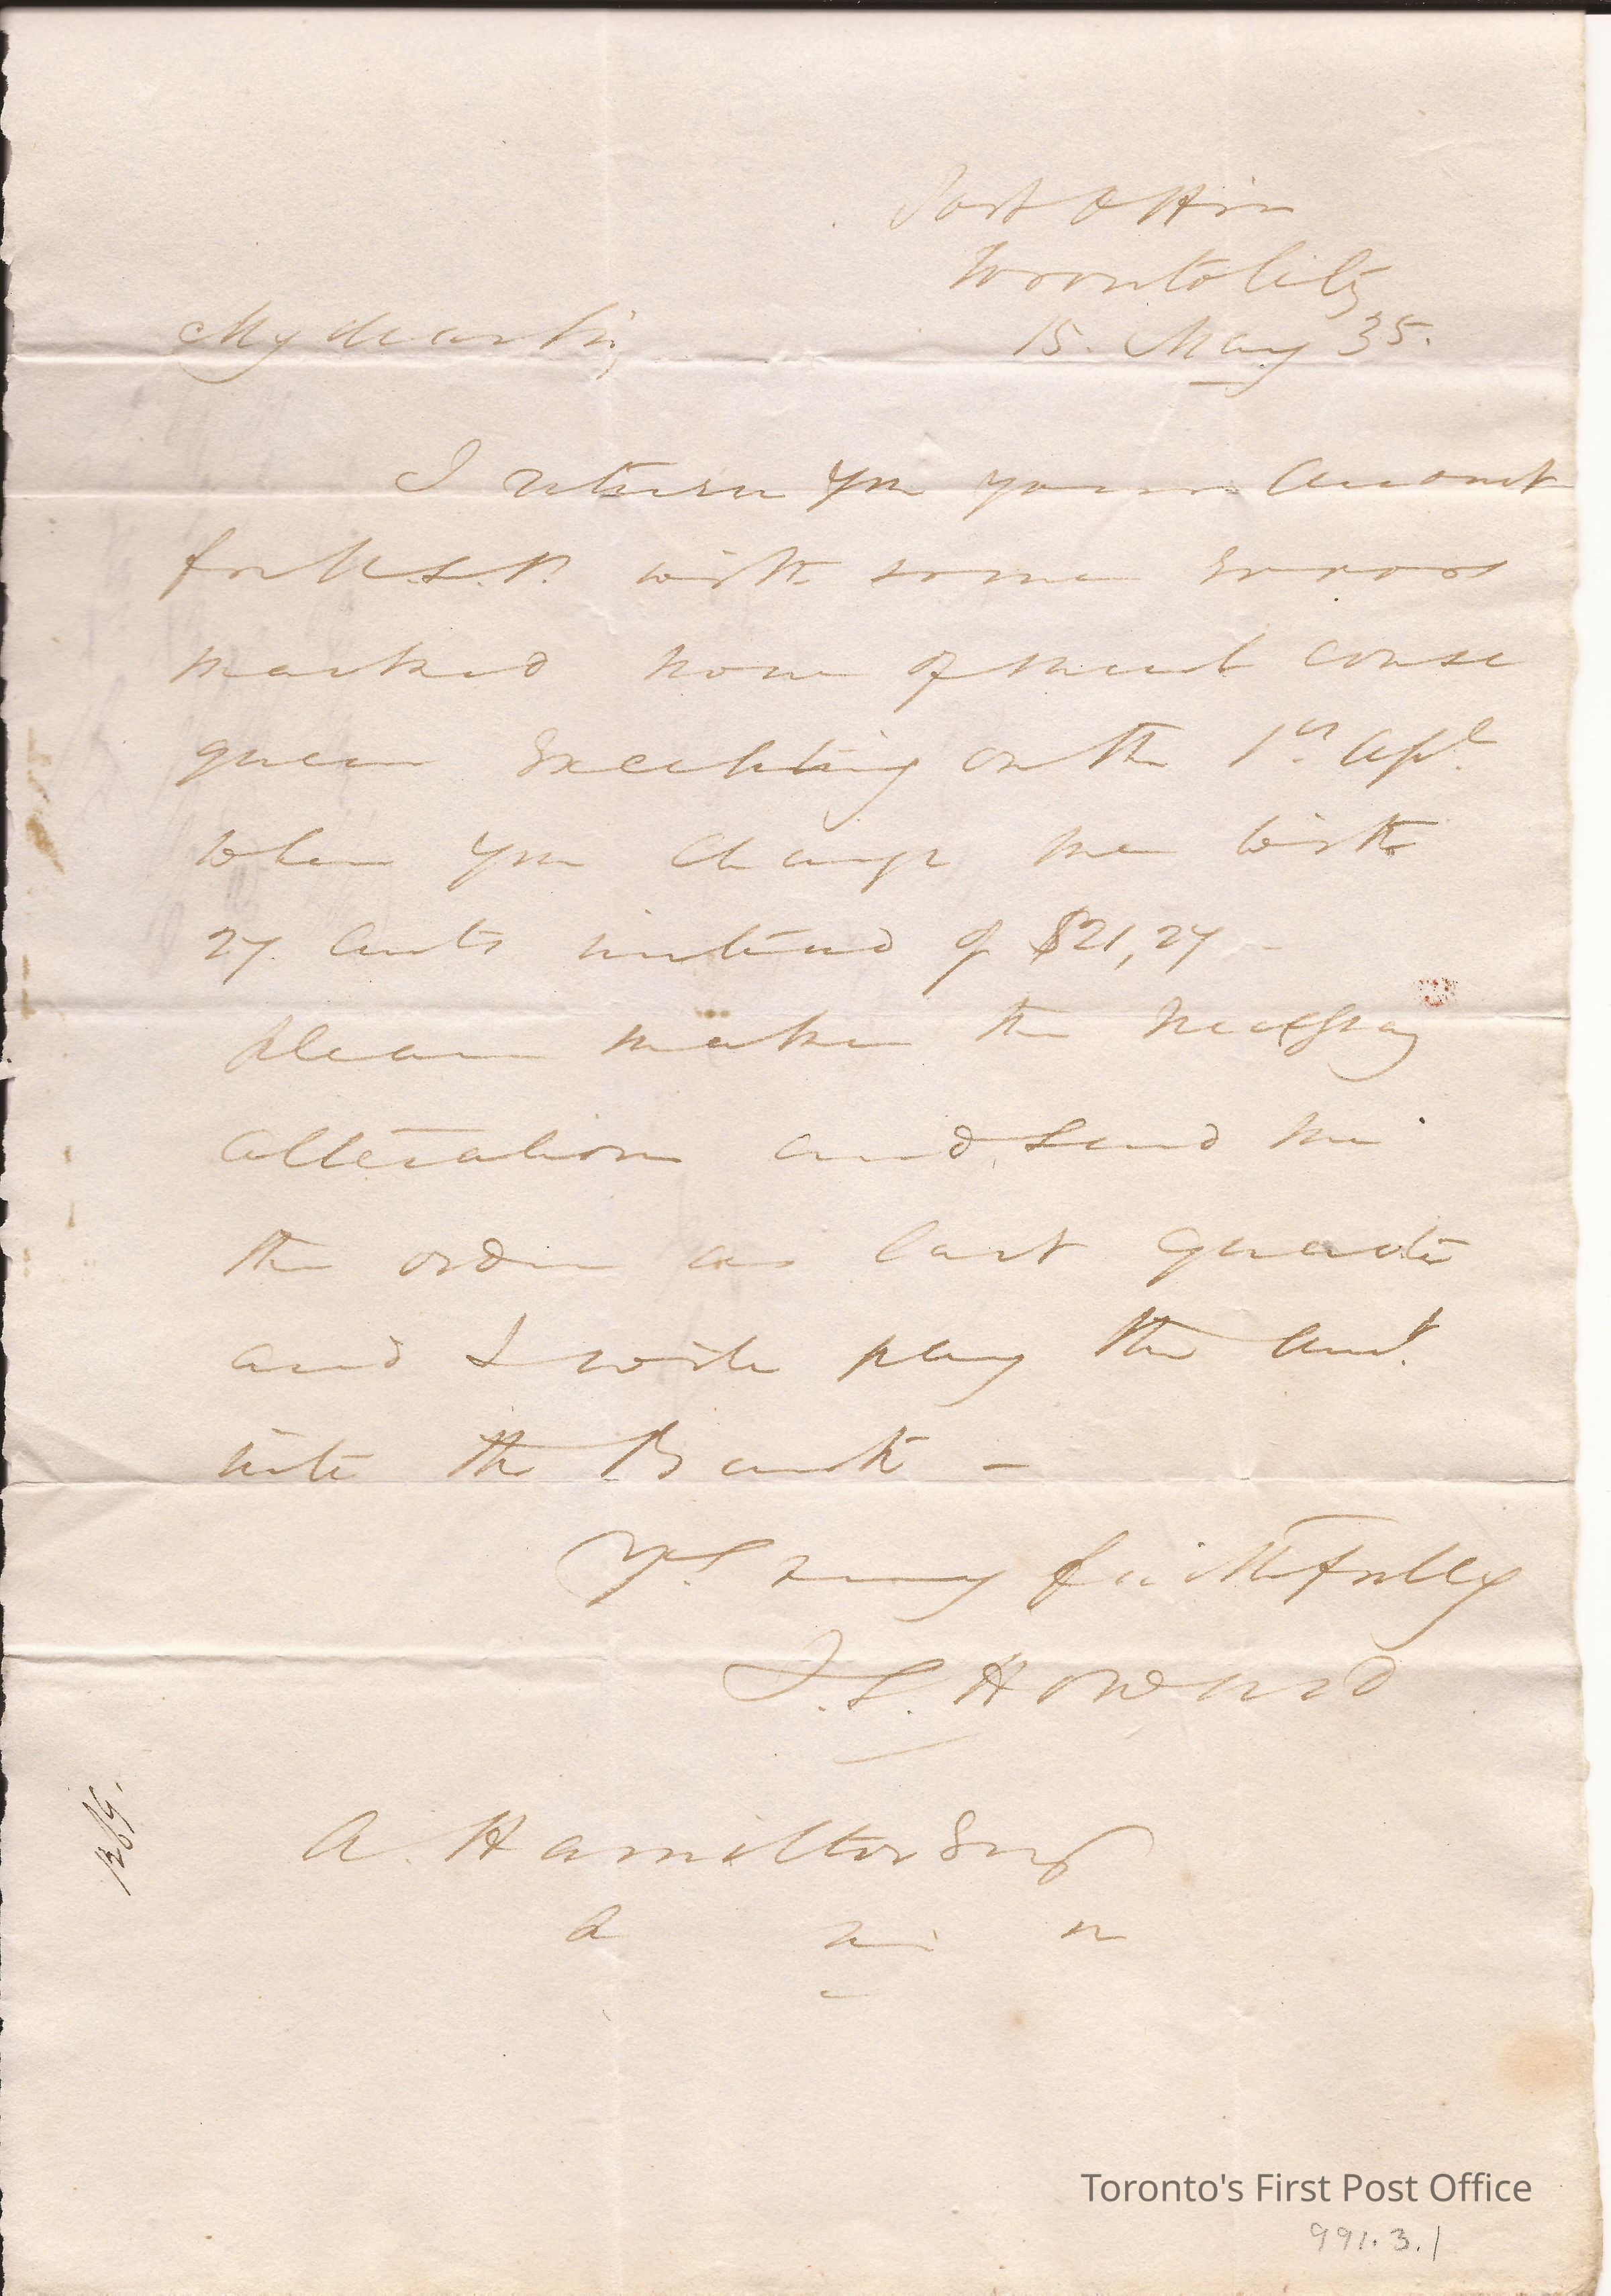 Post Office
Toronto City
My dear Sir,
15. May 35.
I return you your Account
for U.S.P. with some Errors
marked none of much conse
quence Excepting on the 1st Apl.
when you charge me with
27. Cents instead of $21,27 -
please make the necessary
alteration and send me
the order as last quarter
and I will pay the amt.
into the Bank -
Yrs. very faithfully
J.S. Howard
A. Hamilton Esq
Toronto's First Post Office
991.3.1